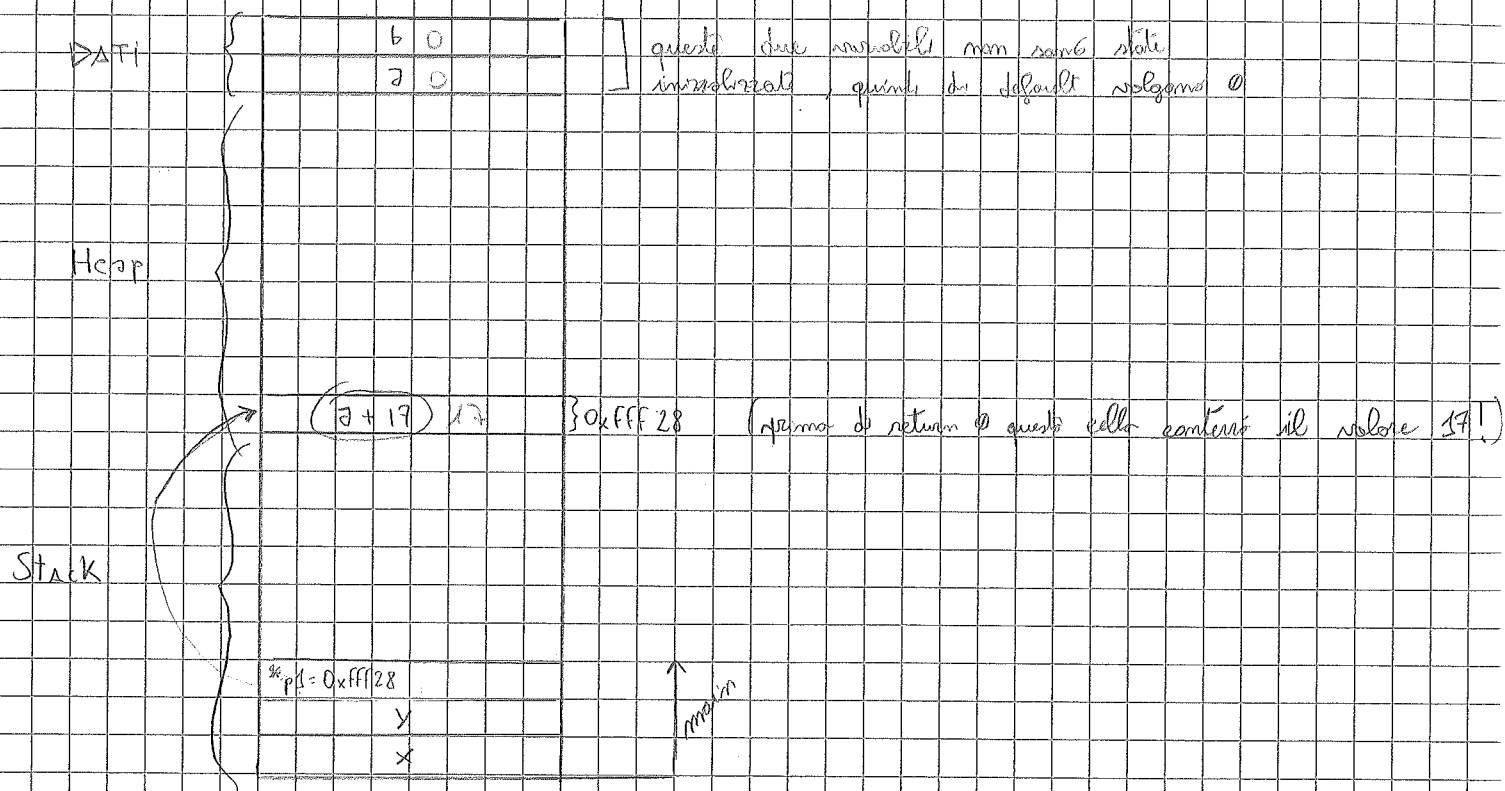 DATI
b 0
a 0
queste due variabili non sono state
inizializzate, quindi di default valgono 0
Heap
a + 17 17
}0xfff28 (prima di return 0 questa cella conterrà il valore 17!)
Stack
*p1=0xfff28
y
x
main